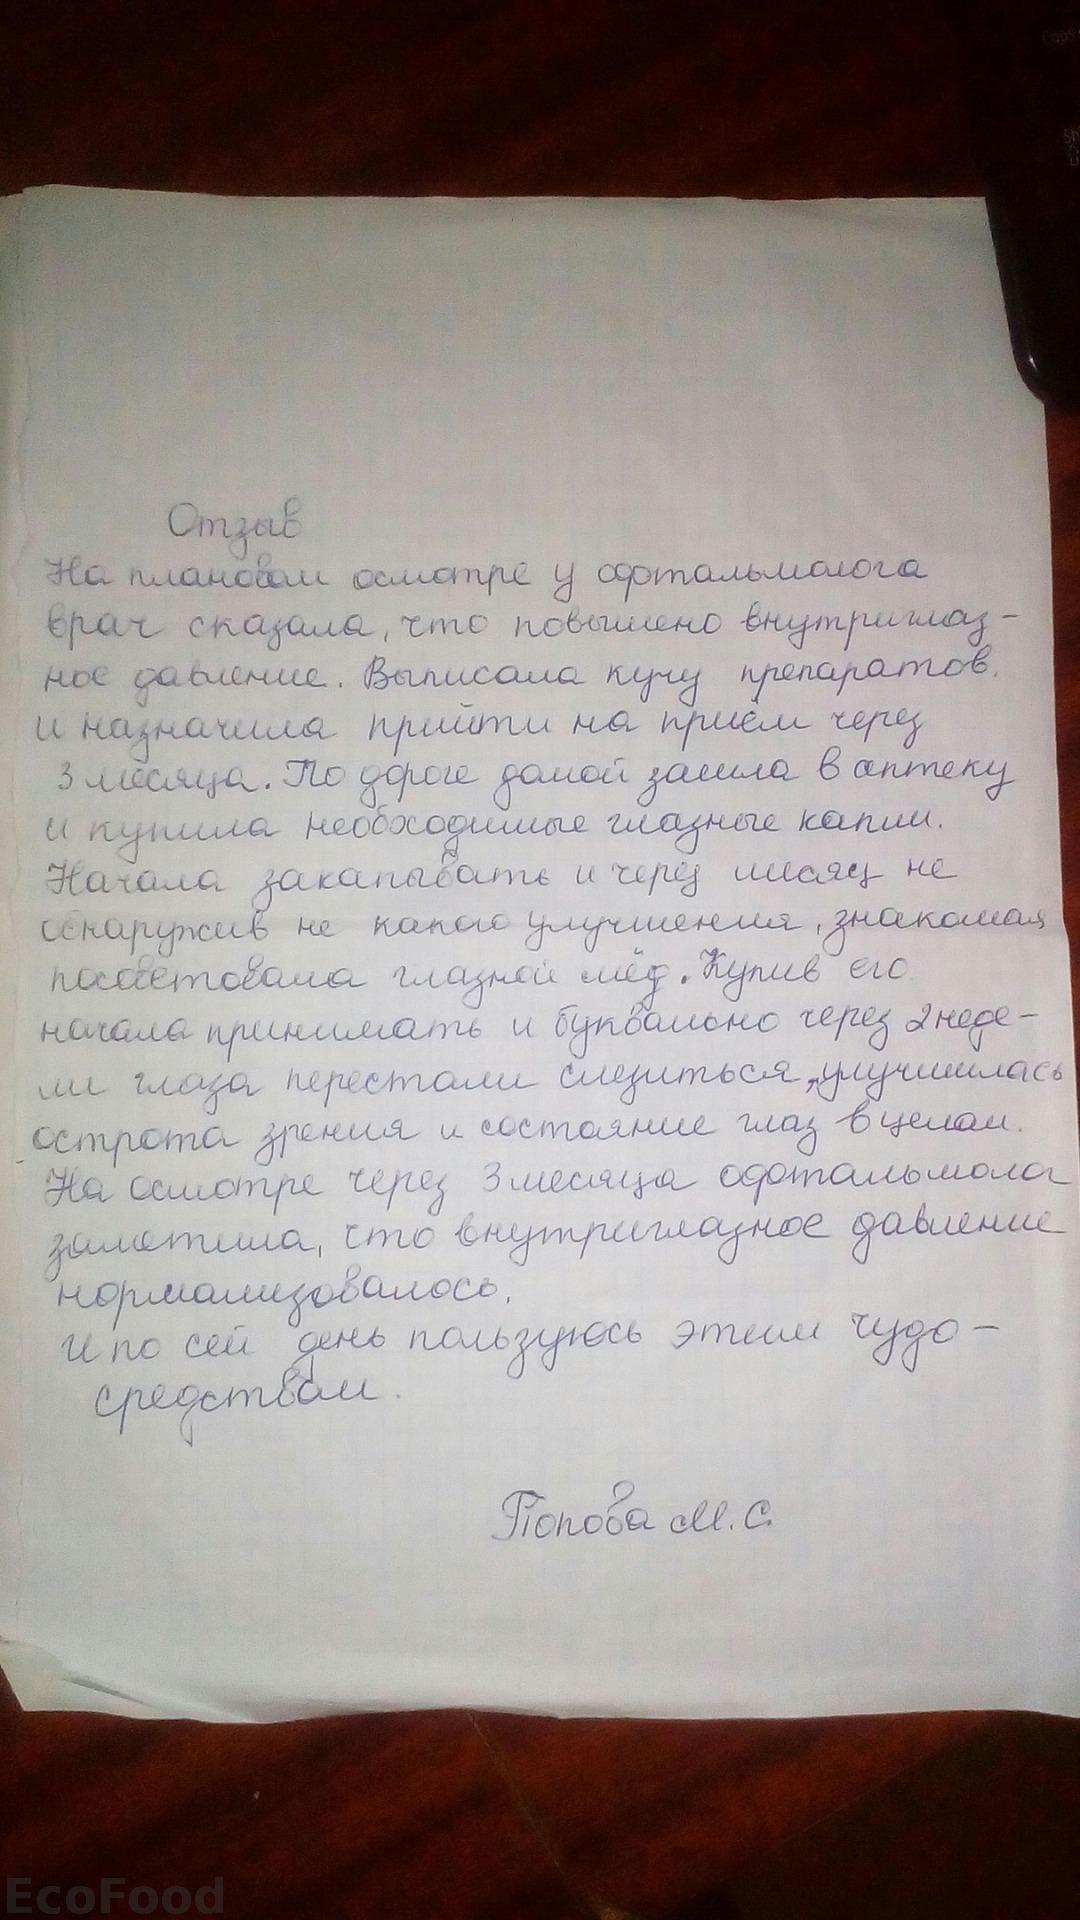 Отзыв
На плановом осмотре у офтальмолога
врач сказала, что повышено внутриглаз-
ное давление. Выписала кучу препаратов.
и назначила прийти на приём через
3 месяца. По дороге домой зашла в аптеку
и купила необходимые глазные капли.
Начала закапывать и через месяц не
обнаружив не какого улучшения, знакомая
посоветовала глазной мёд. Купив его
начала принимать и буквально через 2 неде-
ли глаза перестали слезиться, улучшилась
острота зрения и состояние глаз в целом.
На осмотре через 3 месяца офтальмолог
заметила, что внутриглазное давление
нормализовалось.
И по сей день пользуюсь этим чудо-
средством.
Попова М.С.
EcoFood